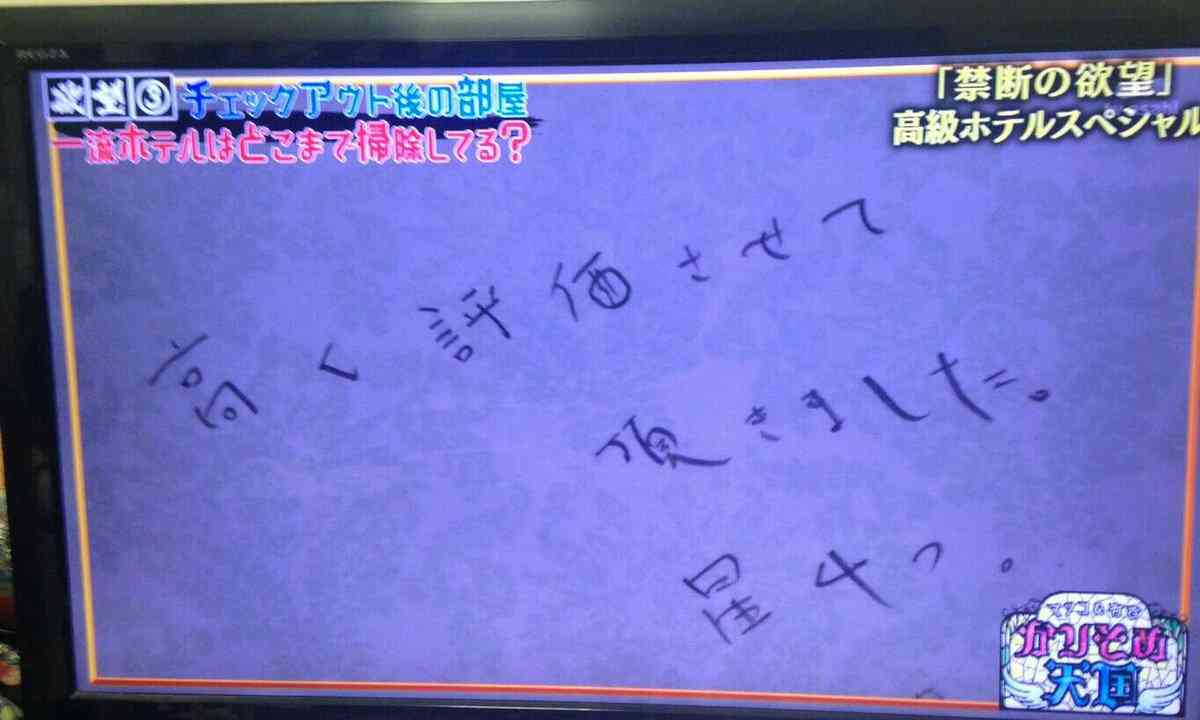 REGZA
欲望③チェックアウト後の部屋
一流ホテルはどこまで掃除してる?
「禁断の欲望」
高級ホテルスペシャル
高く評価させて
頂きました。
星4つ。
マツコ&有吉
かりそめ
天国